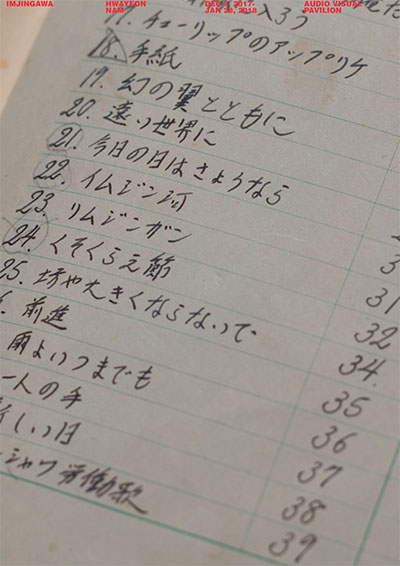 IMJINGAWA HWAYEON NAM DEC 2017- JAN 28, 2018 AUDIO VISUAL PAVILION
17. チューリップのアップリケ
18. 手紙
19. 幻の翼とともに
20. 遠い世界に
21. 今日の日はさようなら
22. イムジン河
23. リムジンガン 31
24. くそくらえ節 32
25. 坊や大きくならないで 34.
前進 35
雨よいつまでも 36
一人の手 37
新しい日 38
シャツ 労働歌 39